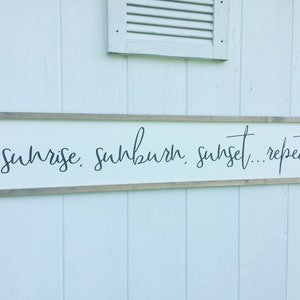 sunrise, sunburn, sunset...repe